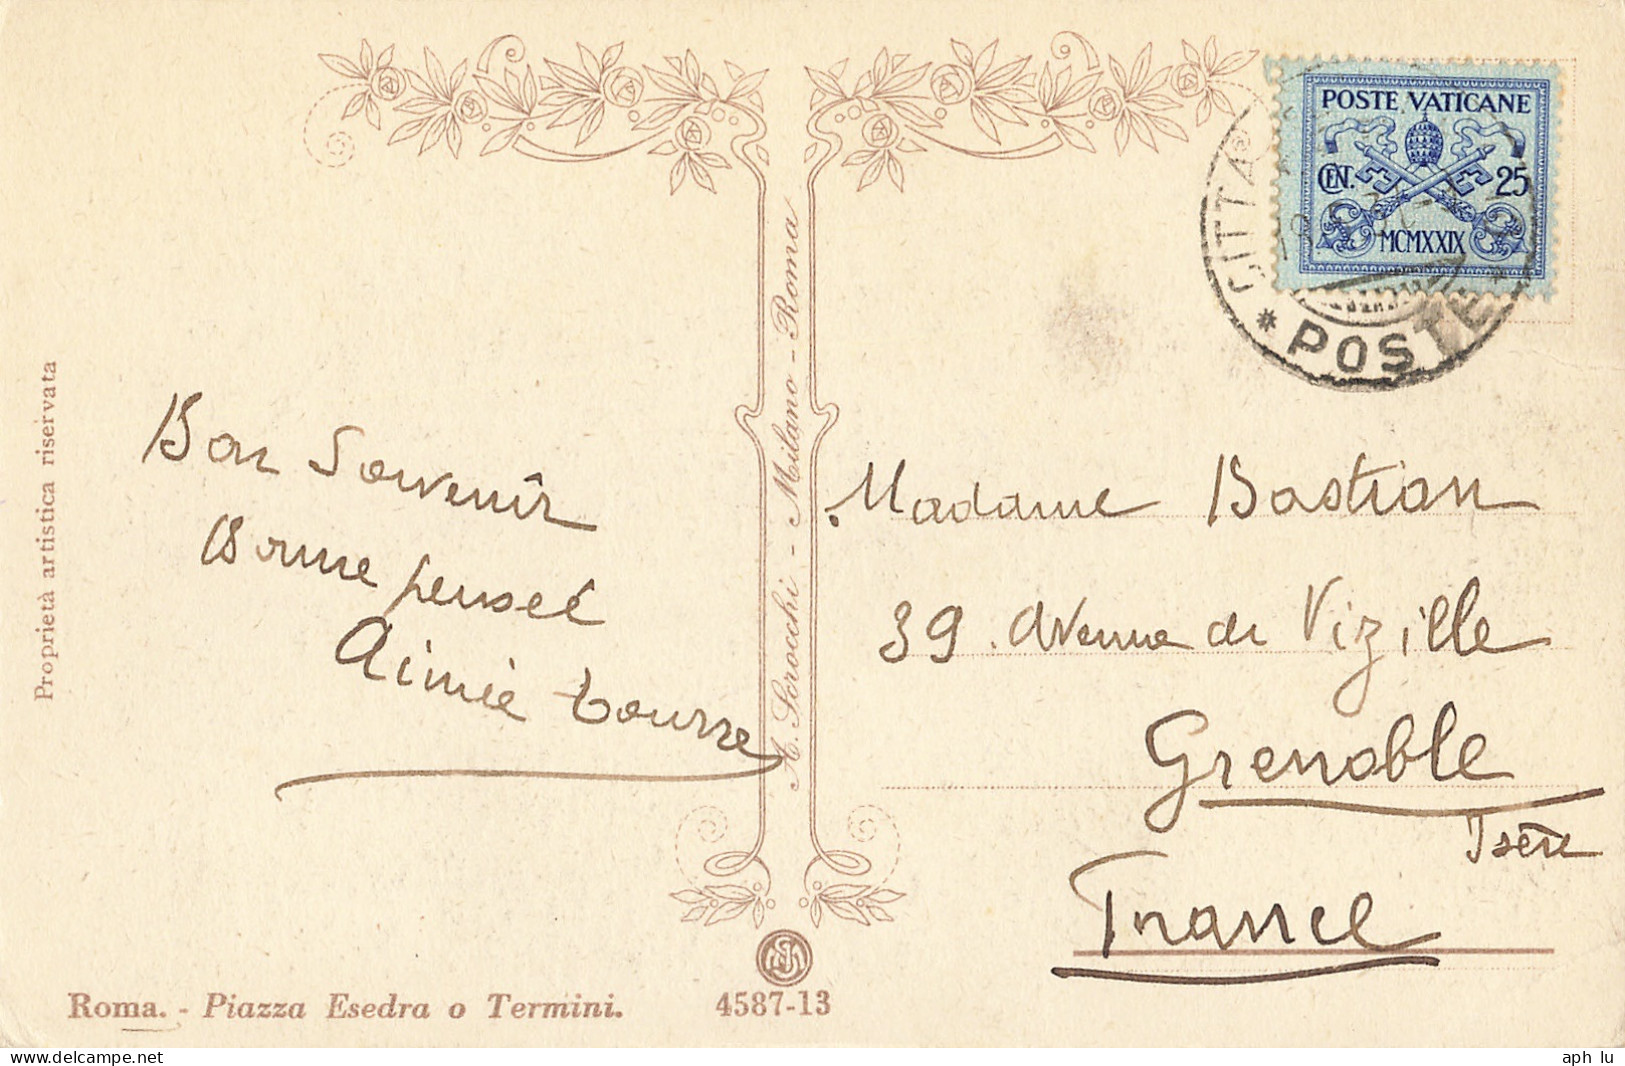 POSTE VATICANE
CEN. 25
MCMXXIX
CITTA
POSTE
Proprietà artistica riservata
A. Scrocchi - Milano - Roma
Bon Souvenir
Bonne pensée
Aimée Tourre
Madame Bastian
39. Avenue de Vizille
Grenoble
Isère
France
Roma. - Piazza Esedra o Termini. 4587-13
www.delcampe.net
aph lu